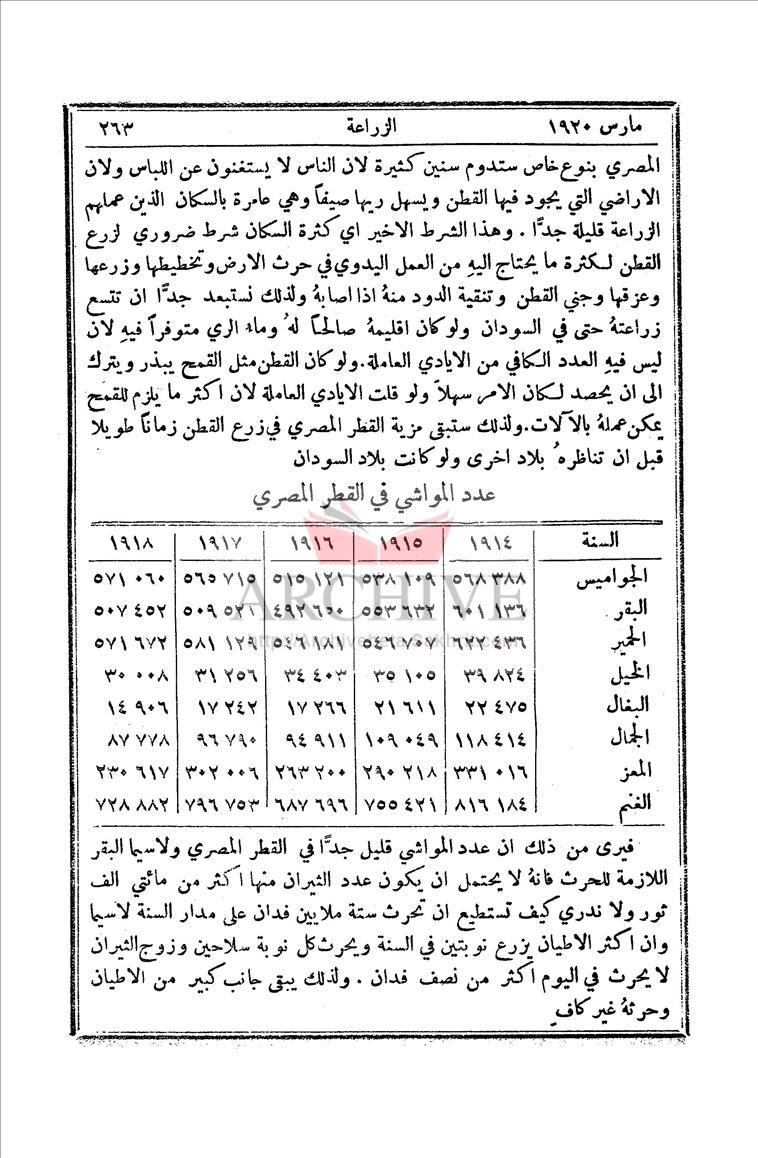 مارس ١٩٢٠ الزراعة ٢٦٣
المصري بنوع خاص ستدوم سنين كثيرة لان الناس لا يستغنون عن اللباس ولان
الاراضي التي يجود فيها القطن ويسهل ريها صيفاً وهي عامرة بالسكان الذين عملهم
الزراعة قليلة جدًّا . وهذا الشرط الاخير اي كثرة السكان شرط ضروري لزرع
القطن لكثرة ما يحتاج اليهِ من العمل اليدوي في حرث الارض وتخطيطها وزرعها
وعزقها وجني القطن وتنقية الدود منهُ اذا اصابهُ ولذلك نستبعد جدًّا ان تتسع
زراعتهُ حتى في السودان ولو كان اقليمهُ صالحاً لهُ وماء الري متوفراً فيهِ لان
ليس فيهِ العدد الكافي من الايادي العاملة . ولو كان القطن مثل القمح يبذر ويترك
الى ان يحصد لكان الامر سهلاً ولو قلت الايادي العاملة لان اكثر ما يلزم للقمح
يمكن عملهُ بالآلات . ولذلك ستبقى مزية القطر المصري في زرع القطن زماناً طويلا
قبل ان تناظرهُ بلاد اخرى ولو كانت بلاد السودان
عدد المواشي في القطر المصري
السنة ١٩١٤ ١٩١٥ ١٩١٦ ١٩١٧ ١٩١٨
الجواميس ٥٦٨ ٣٨٨ ٥٣٨ ١٠٩ ٥١٥ ١٢١ ٥٦٥ ٧١٥ ٥٧١ ٠٦٠
البقر ٦٠١ ١٣٦ ٥٥٣ ٦٣٢ ٤٩٢ ٦٥٠ ٥٠٩ ٥٢١ ٥٠٧ ٤٥٢
الحمير ٦٢٢ ٤٣٦ ٥٤٦ ٧٠٧ ٥٤٦ ١٨١ ٥٨١ ١٢٩ ٥٧١ ٦٧٢
الخيل ٣٩ ٨٢٤ ٣٥ ١٠٥ ٣٤ ٤٠٣ ٣١ ٢٥٦ ٣٠ ٠٠٨
البغال ٢٢ ٤٧٥ ٢١ ٦١١ ١٧ ٢٦٦ ١٧ ٢٤٢ ١٤ ٩٠٦
الجمال ١١٨ ٤١٤ ١٠٩ ٠٤٩ ٩٤ ٩١١ ٩٦ ٧٩٠ ٨٧ ٧٧٨
المعز ٣٣١ ٠١٦ ٢٩٠ ٢١٨ ٢٦٣ ٢٠٠ ٣٠٢ ٠٠٦ ٢٣٠ ٦١٧
الغنم ٨١٦ ١٨٤ ٧٥٥ ٤٢١ ٦٨٧ ٦٩٦ ٧٩٦ ٧٥٣ ٧٢٨ ٨٨٢
ARCHIVE
http://Archivebeta.Sakhrit.com
فيرى من ذلك ان عدد المواشي قليل جدًّا في القطر المصري ولاسيما البقر
اللازمة للحرث فانهُ لا يحتمل ان يكون عدد الثيران منها اكثر من مائتي الف
ثور ولا ندري كيف تستطيع ان تحرث ستة ملايين فدان على مدار السنة لاسيما
وان اكثر الاطيان يزرع نوبتين في السنة ويحرث كل نوبة سلاحين وزوج الثيران
لا يحرث في اليوم اكثر من نصف فدان . ولذلك يبقى جانب كبير من الاطيان
وحرثهُ غير كافٍ